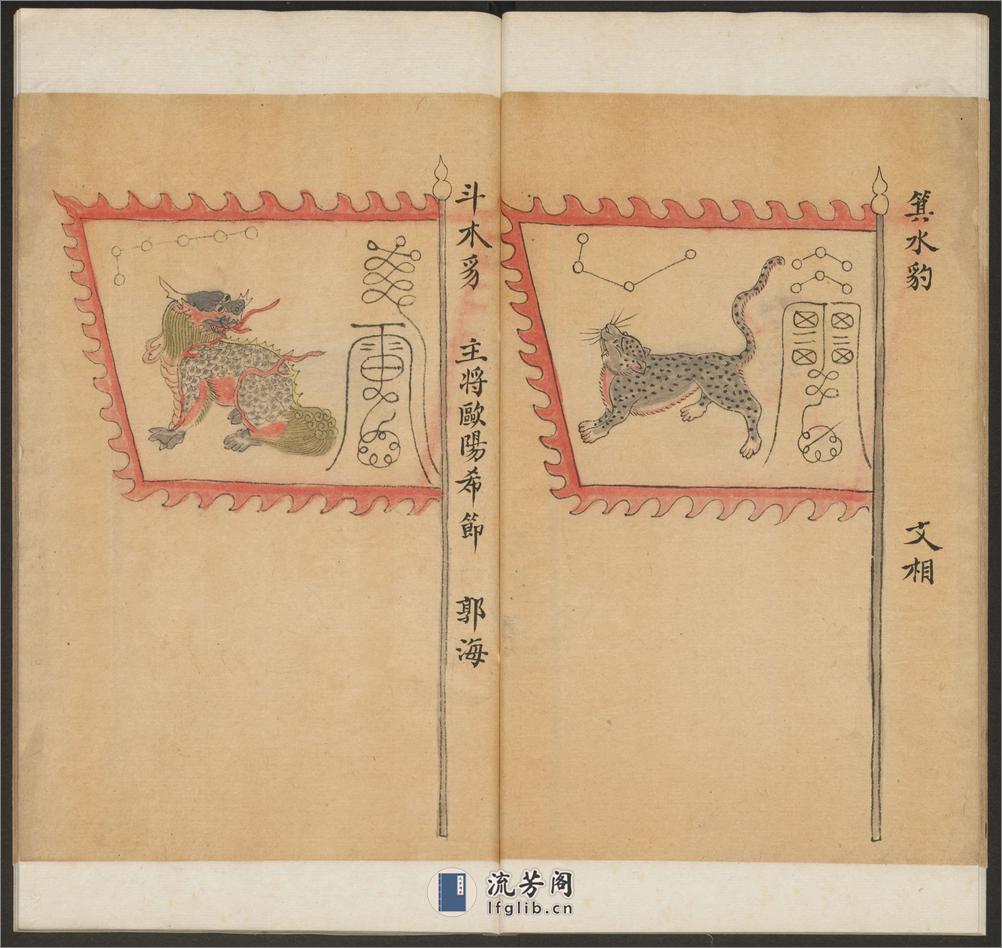 箕水豹 文相
斗木豸 主将歐陽希節 郭海
流芳阁
lfglib.cn